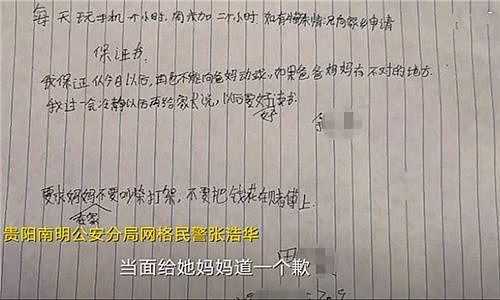 每天玩手机一个小时,周末加二个小时,如有特殊情况向家长申请
保证书
我保证从今日以后,再也不能向爸妈动武,如果爸爸妈妈有不对的地方.
我过一会冷静以后再给家长说,以后要好好读书
要求妈妈爸爸不要吵架打架,不要把钱花在赌博上.
贵阳南明公安分局网格民警张浩华
当面给她妈妈道一个歉